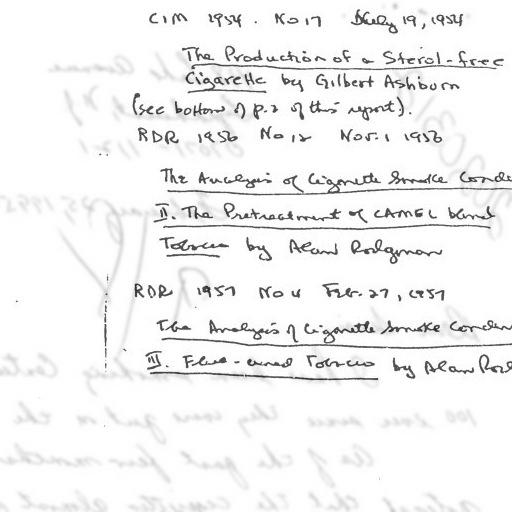 CIM 1954. No 17 July 19, 1954
The Production of a Sterol-free
Cigarette by Gilbert Ashburn
(see bottom of p.2 of this report).
RDR 1956 No 12 Nov. 1 1956
The Analysis of Cigarette Smoke Conde
II. The Pretreatment of CAMEL blend
Tobacco by Alan Rodgman
RDR 1957 No 4 Feb. 27, 1957
The Analysis of Cigarette Smoke Conden
III. Flue-cured Tobacco by Alan Rod